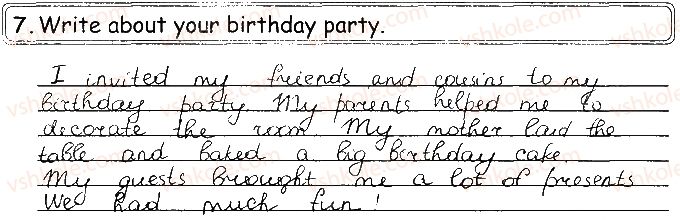 7. Write about your birthday party.
I invited my friends and cousins to my
birthday party My parents helped me to
decorate the room My mother laid the
table and baked a big birthday cake
My guests brought me a lot of presents
We had much fun!